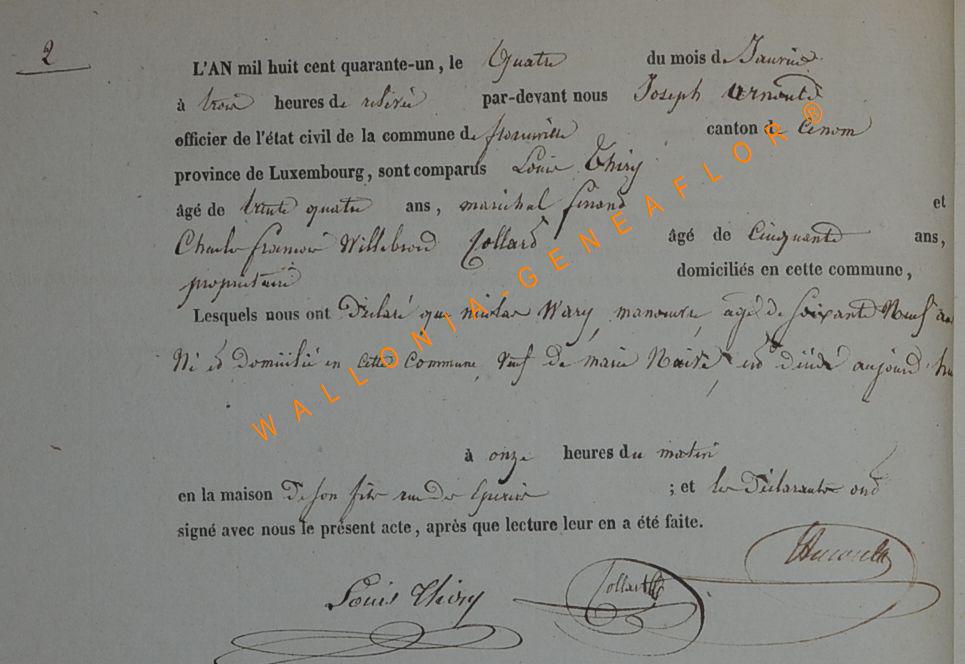 2
L'AN mil huit cent quarante-un, le quatre du mois de Janvier
à trois heures de relevée par-devant nous Joseph
officier de l'état civil de la commune de florenville canton de
province de Luxembourg, sont comparus Louis Thiry
âgé de trente quatre ans, maréchal ferand et
Charles françois Willebrord Collard âgé de Cinquante ans,
propriétaire domiciliés en cette commune,
Lesquels nous ont Déclaré que nicolas Wary, manoeuvre, agé de soixante Neuf ans
Né et domicilié en cette Commune, veuf de marie est décédé aujourd'hu
à onze heures du matin
en la maison De son fils rue de ; et les Déclarants ont
signé avec nous le présent acte, après que lecture leur en a été faite.
Louis Thiry Collard
WALLONIA-GENEAFLOR®